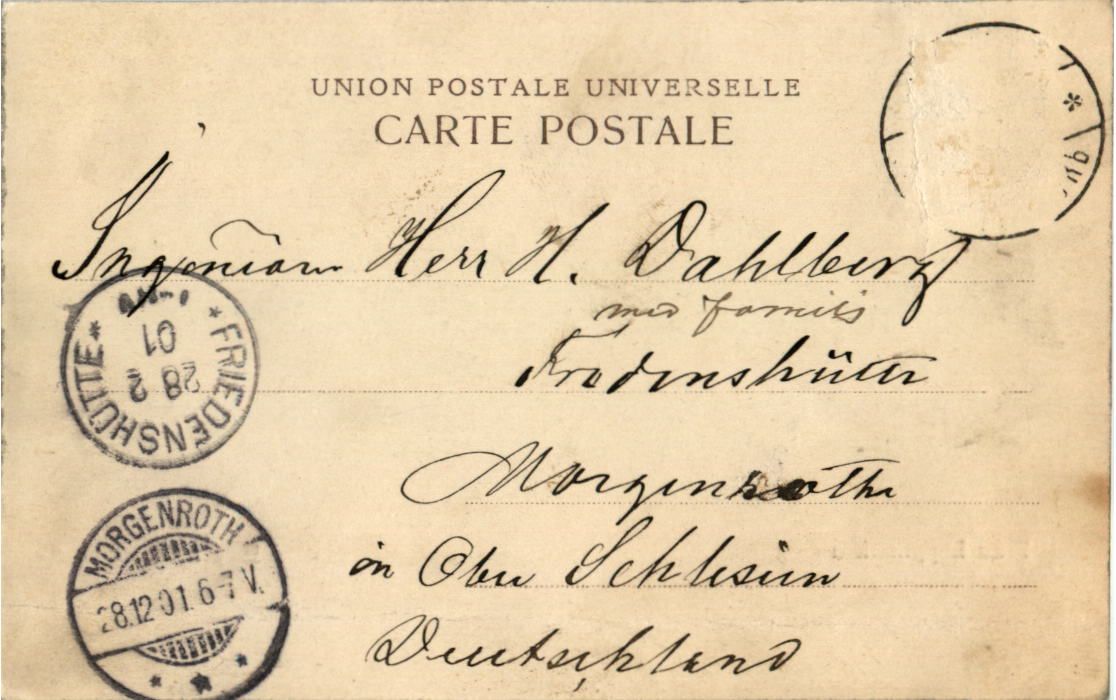 UNION POSTALE UNIVERSELLE
CARTE POSTALE
Ingeniören Herr H. Dahlberg
med familj
Fredenshütte
Morgenrothe
in Ober Schlesien
Deutschland
* FRIEDENSHÜTTE *
28 2
01
MORGENROTH
28.12.01.6-7V.